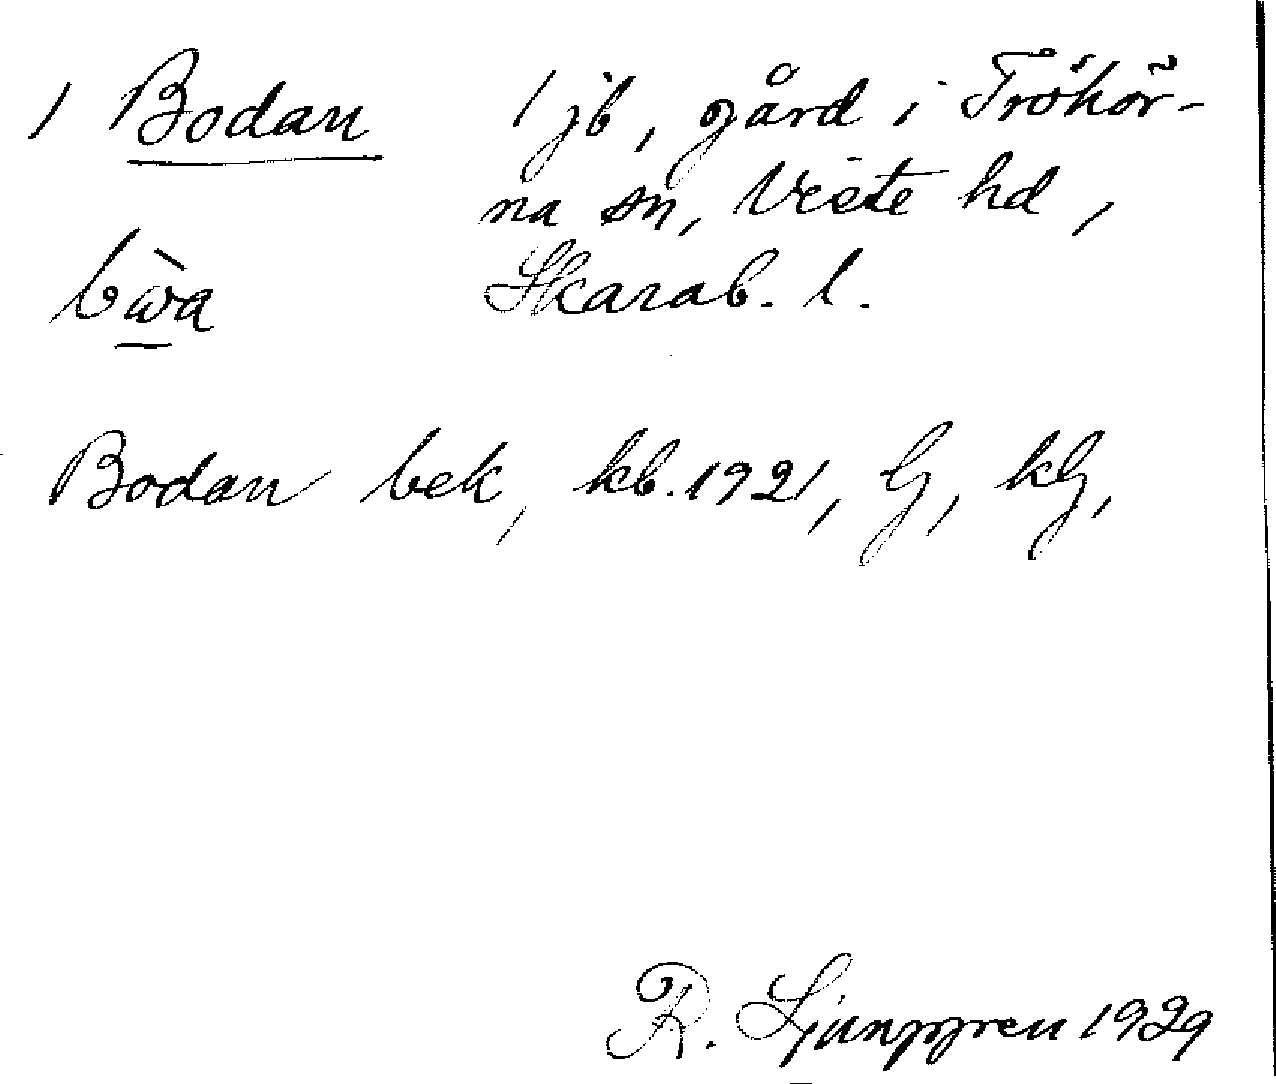 1 Bodan 1 jb, gård i Tröhör-
na sn, Viste hd,
Skarab. l.
bẁa
Bodan bek, kb. 1921, G, kG,
R. Ljunggren 1929